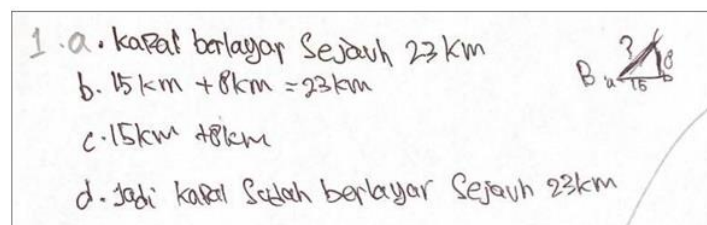 1.a. kapal berlayar Sejauh 23 km
b. 15 km + 8km = 23km
c. 15km +8km
d. Jadi kapal Sudah berlayar Sejauh 23km
? 8
B a 15 b